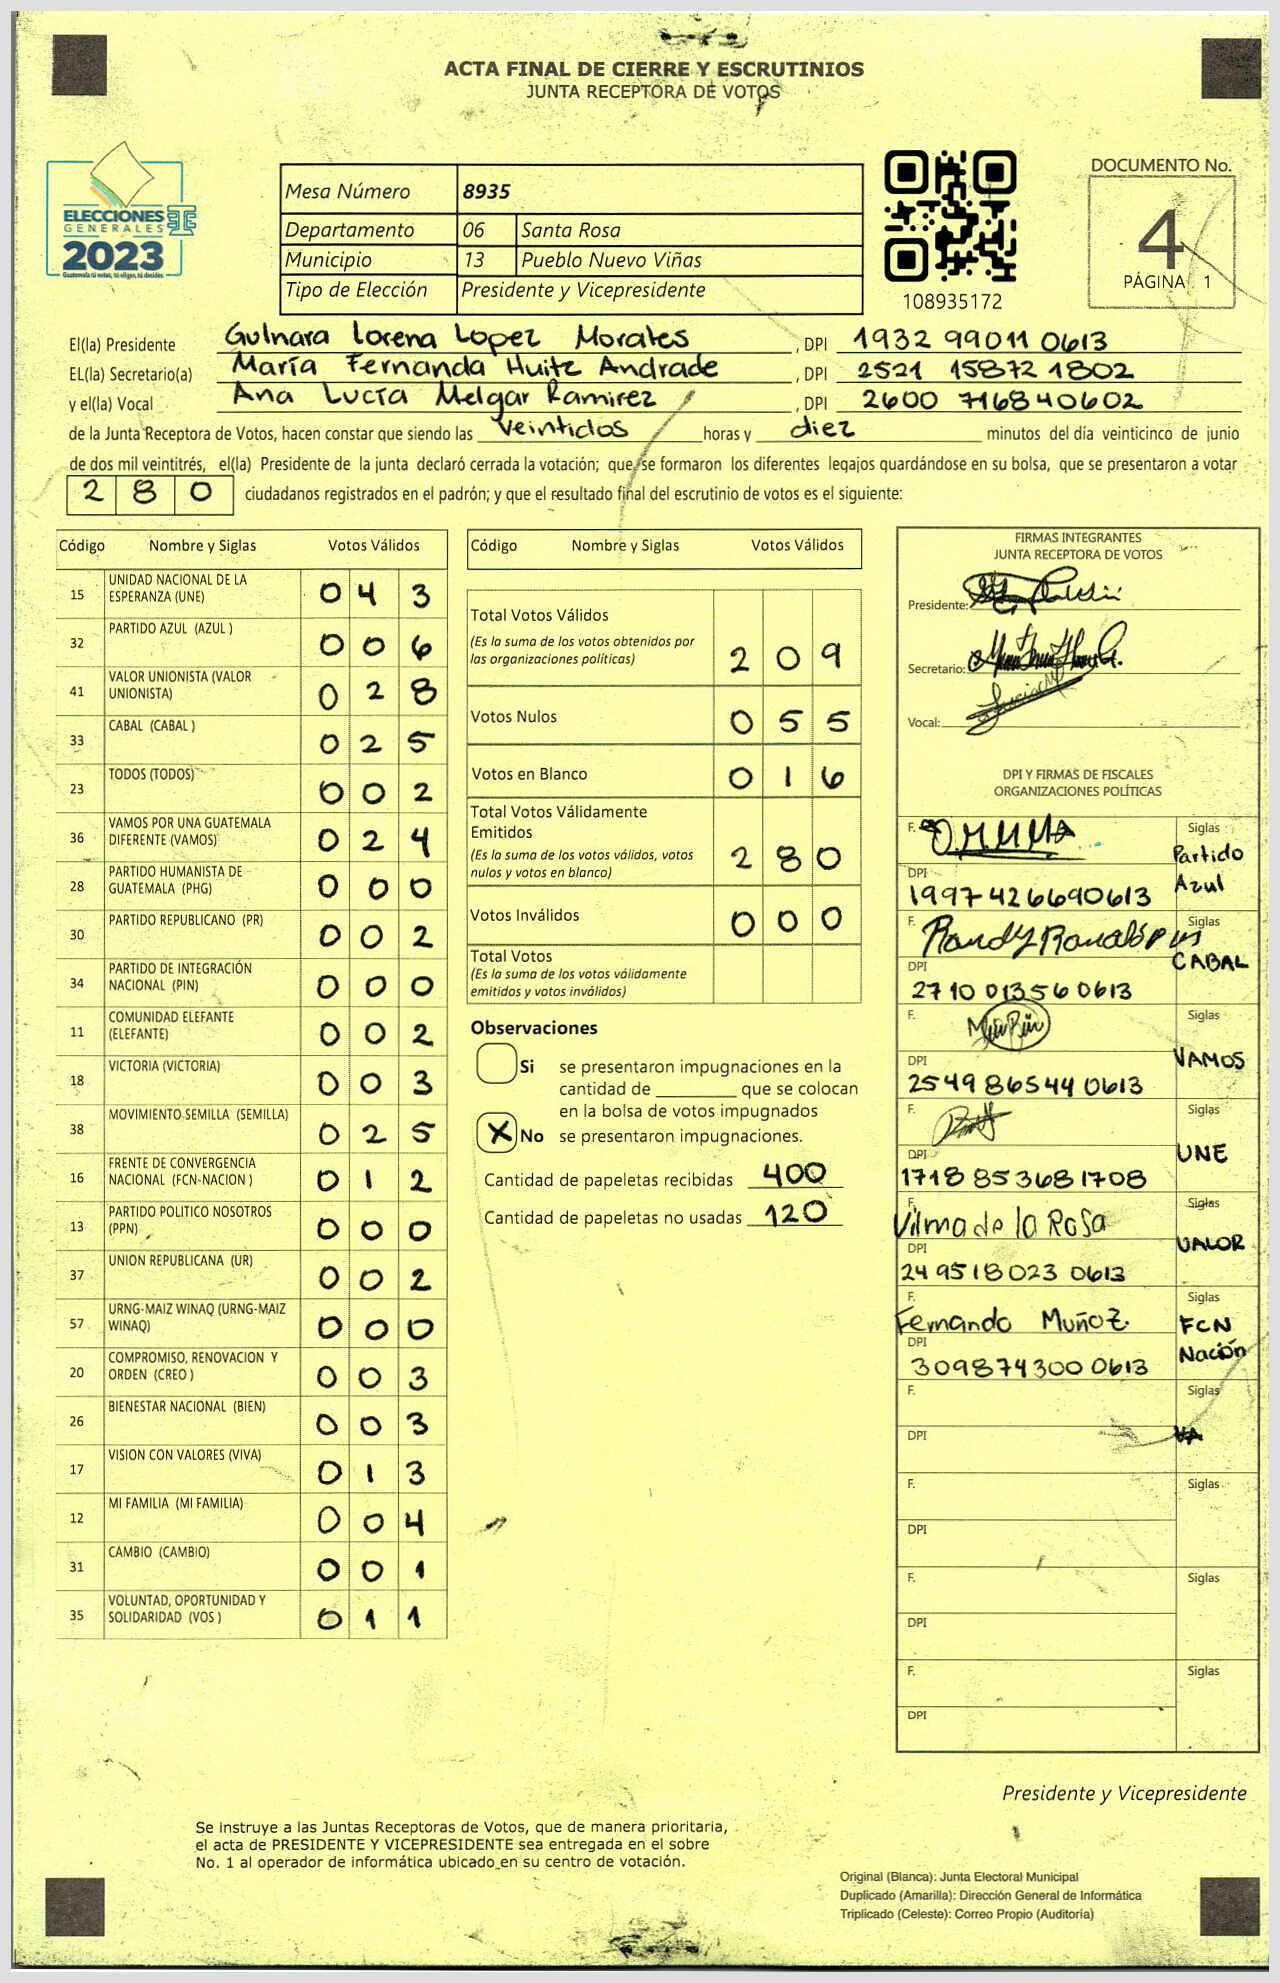 ACTA FINAL DE CIERRE Y ESCRUTINIOS
JUNTA RECEPTORA DE VOTOS
ELECCIONES
GENERALES
2023
Guatemala tú votas, tú eliges, tú decides
Mesa Número 8935
Departamento 06 Santa Rosa
Municipio 13 Pueblo Nuevo Viñas
Tipo de Elección Presidente y Vicepresidente
108935172
DOCUMENTO No.
4
PÁGINA 1
El(la) Presidente Gulnara Lorena Lopez Morales, DPI 1932 99011 0613
EL(la) Secretario(a) María Fernanda Huitz Andrade, DPI 2521 15872 1802
y el(la) Vocal Ana Lucía Melgar Ramirez, DPI 2600 71684 0602
de la Junta Receptora de Votos, hacen constar que siendo las veintidos horas y diez minutos del día veinticinco de junio
de dos mil veintitrés, el(la) Presidente de la junta declaró cerrada la votación; que se formaron los diferentes legajos guardándose en su bolsa, que se presentaron a votar
280 ciudadanos registrados en el padrón; y que el resultado final del escrutinio de votos es el siguiente:
Código Nombre y Siglas Votos Válidos
15 UNIDAD NACIONAL DE LA ESPERANZA (UNE) 043
32 PARTIDO AZUL (AZUL ) 006
41 VALOR UNIONISTA (VALOR UNIONISTA) 028
33 CABAL (CABAL ) 025
23 TODOS (TODOS) 002
36 VAMOS POR UNA GUATEMALA DIFERENTE (VAMOS) 024
28 PARTIDO HUMANISTA DE GUATEMALA (PHG) 000
30 PARTIDO REPUBLICANO (PR) 002
34 PARTIDO DE INTEGRACIÓN NACIONAL (PIN) 000
11 COMUNIDAD ELEFANTE (ELEFANTE) 002
18 VICTORIA (VICTORIA) 003
38 MOVIMIENTO SEMILLA (SEMILLA) 025
16 FRENTE DE CONVERGENCIA NACIONAL (FCN-NACION ) 012
13 PARTIDO POLITICO NOSOTROS (PPN) 000
37 UNION REPUBLICANA (UR) 002
57 URNG-MAIZ WINAQ (URNG-MAIZ WINAQ) 000
20 COMPROMISO, RENOVACION Y ORDEN (CREO ) 003
26 BIENESTAR NACIONAL (BIEN) 003
17 VISION CON VALORES (VIVA) 013
12 MI FAMILIA (MI FAMILIA) 004
31 CAMBIO (CAMBIO) 001
35 VOLUNTAD, OPORTUNIDAD Y SOLIDARIDAD (VOS ) 011
Código Nombre y Siglas Votos Válidos
Total Votos Válidos
(Es la suma de los votos obtenidos por
las organizaciones políticas) 209
Votos Nulos 055
Votos en Blanco 016
Total Votos Válidamente
Emitidos
(Es la suma de los votos válidos, votos
nulos y votos en blanco) 280
Votos Inválidos 000
Total Votos
(Es la suma de los votos válidamente
emitidos y votos inválidos)
Observaciones
Si se presentaron impugnaciones en la
cantidad de ________ que se colocan
en la bolsa de votos impugnados
X No se presentaron impugnaciones.
Cantidad de papeletas recibidas 400
Cantidad de papeletas no usadas 120
FIRMAS INTEGRANTES
JUNTA RECEPTORA DE VOTOS
Presidente:
Secretario:
Vocal:
DPI Y FIRMAS DE FISCALES
ORGANIZACIONES POLÍTICAS
F. Siglas Partido Azul
DPI 1997 42669 0613
F. Siglas CABAL
DPI 2710 01356 0613
F. Siglas VAMOS
DPI 2549 86544 0613
F. Siglas UNE
DPI 1718 85368 1708
F. Vilma de la Rosa Siglas VALOR
DPI 2495 18023 0613
F. Fernando Muñoz. Siglas FCN Nación
DPI 3098 74300 0613
F. Siglas
DPI
F. Siglas
DPI
F. Siglas
DPI
F. Siglas
DPI
Presidente y Vicepresidente
Se instruye a las Juntas Receptoras de Votos, que de manera prioritaria,
el acta de PRESIDENTE Y VICEPRESIDENTE sea entregada en el sobre
No. 1 al operador de informática ubicado en su centro de votación.
Original (Blanca): Junta Electoral Municipal
Duplicado (Amarilla): Dirección General de Informática
Triplicado (Celeste): Correo Propio (Auditoría)